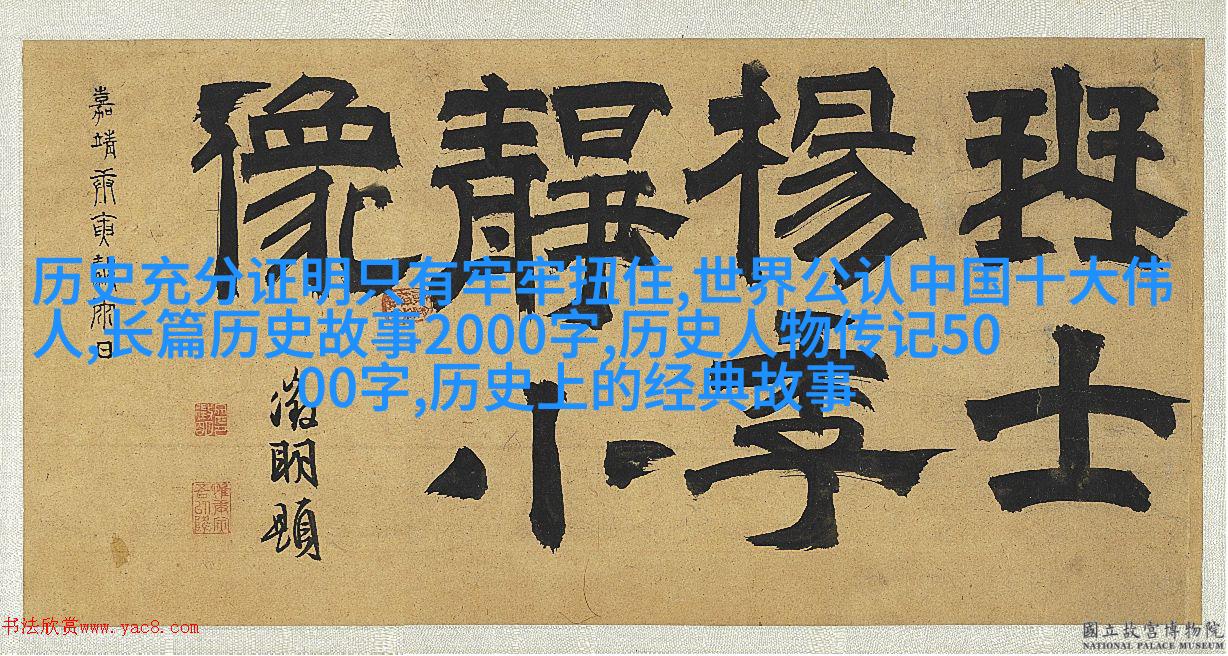 珡士
楊季
靜小
像
嘉靖庚寅穀雨日
徵明題
历史充分证明只有牢牢扭住,世界公认中国十大伟
人,长篇历史故事2000字,历史人物传记50
00字,历史上的经典故事
书法欣赏www.yac8.com
國立故宮博物院
NATIONAL PALACE MUSEUM